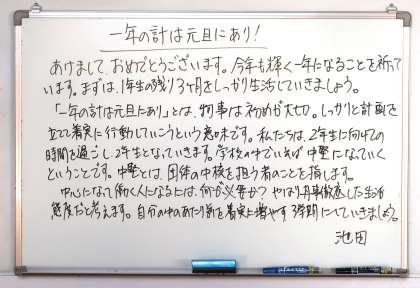 一年の計は元旦にあり!
あけまして、おめでとうございます。今年も輝く一年になることを祈って
います。まずは、1年生の残り3ヶ月をしっかり生活していきましょう。
「一年の計は元旦にあり」とは、物事は初めが大切。しっかりと計画を
立て着実に行動していこうという意味です。私たちは、2年生に向けての
時間を過ごし、2年生となっていきます。学校の中でいえば中堅になっていく
ということです。中堅とは、団体の中核を担う者のことを指します。
中心になって働く人になるには、何が必要か?やはり凡事徹底した生活
態度だと考えます。自分の中のあたり前を着実に増やす3学期にしていきましょう。
池田